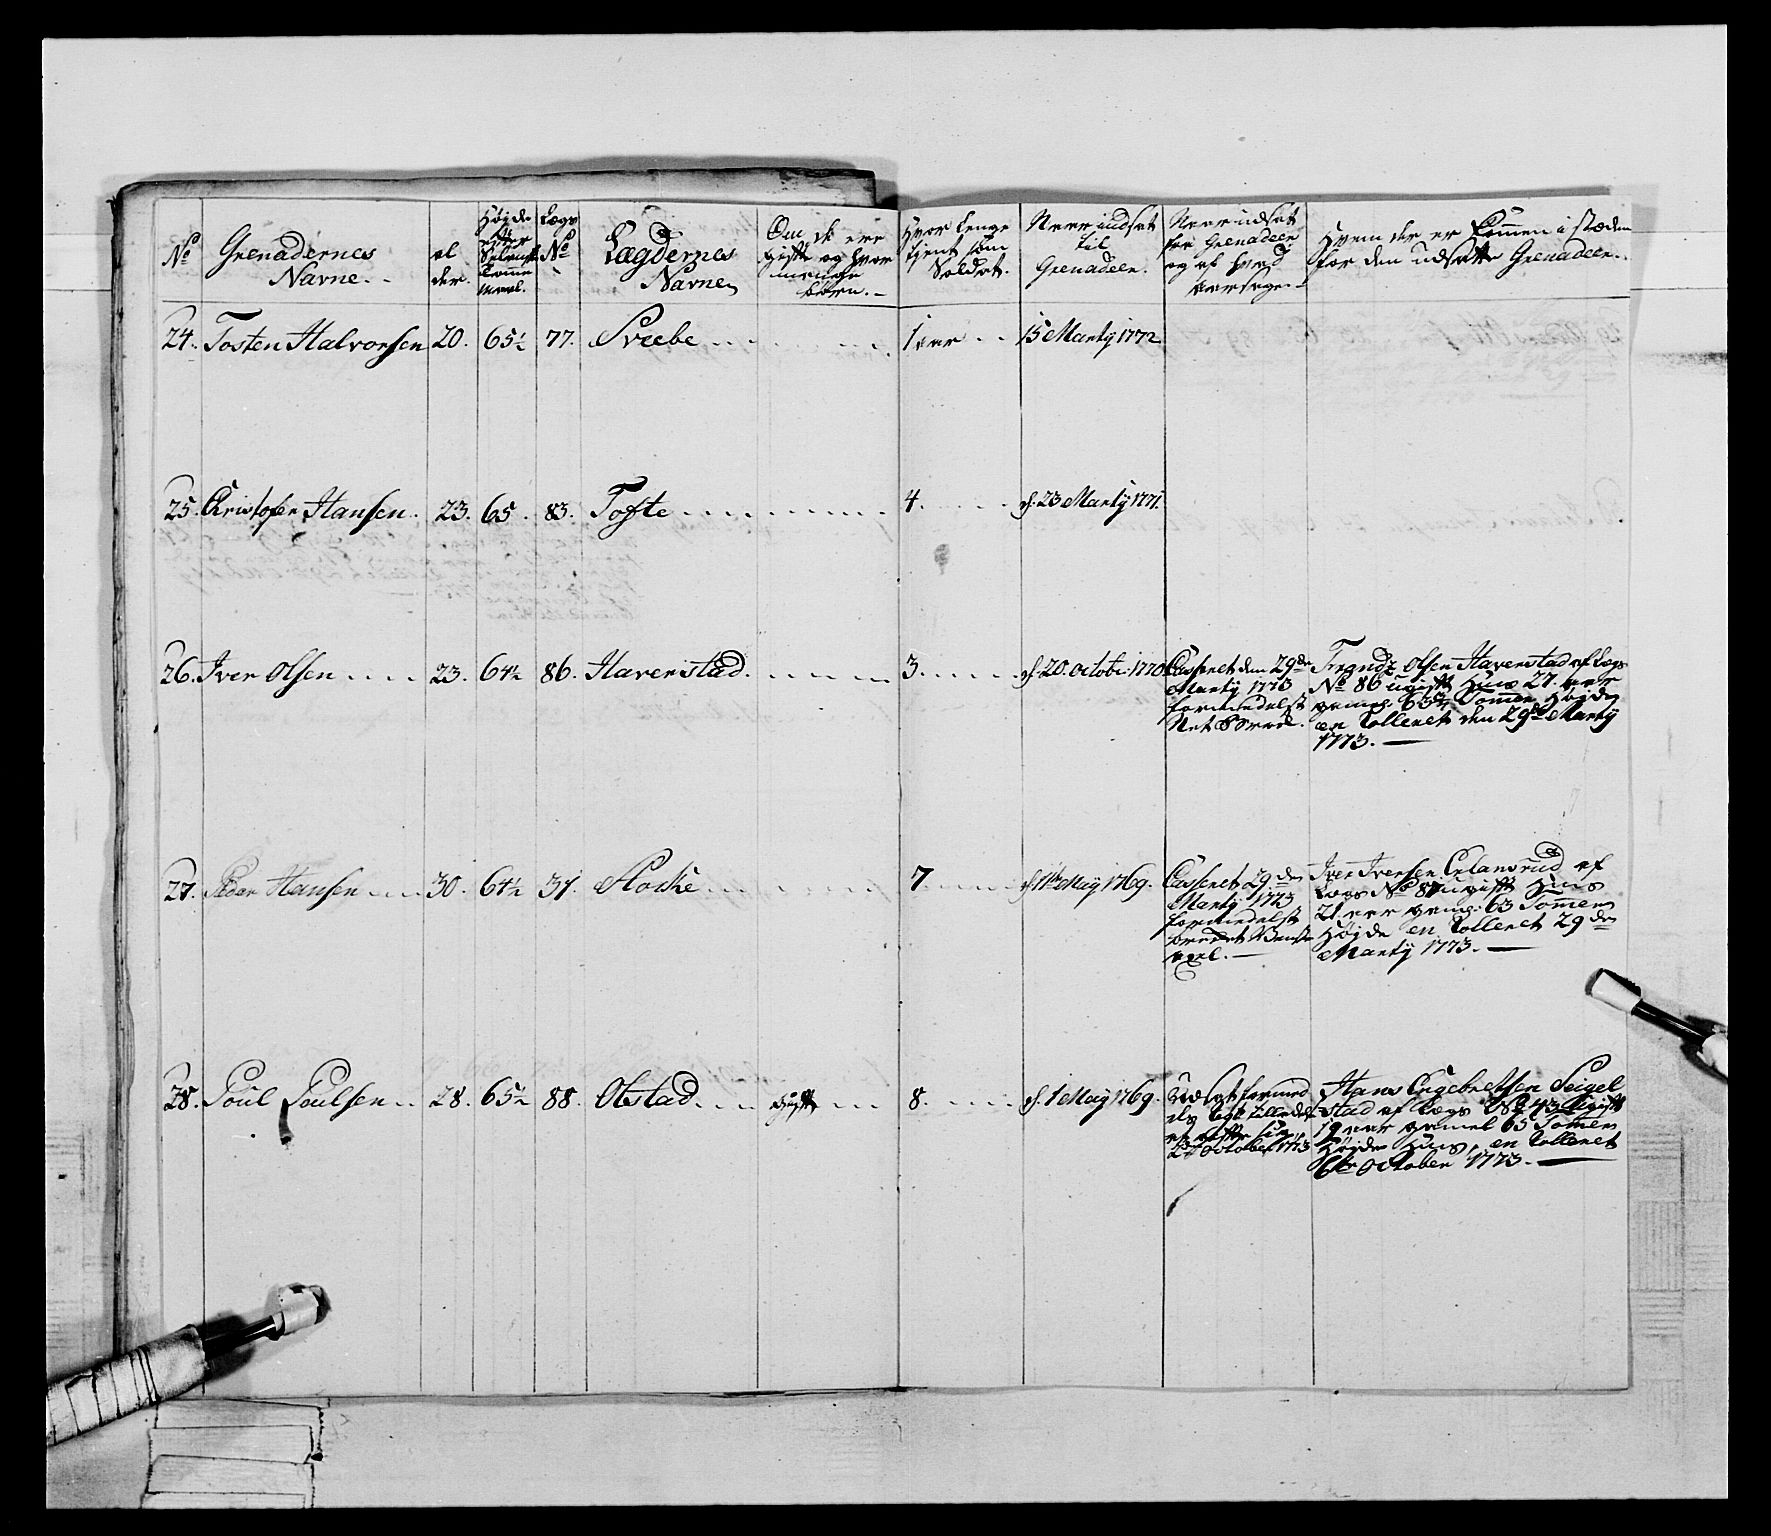 No
Grenadernes
Navne.
al
der.
Højde
efter
Tomme
Maal.
Lægs
No
Lægdernes
Navne
Om de ere
gifte og hvor
mange
børn.
Hvor lenge
tjent som
Soldat.
Naar indsat
til
Grenadeer.
Naar udsat
fra Grenadeer
og af hvad
aarsage.
Hvem der er kommen i stæden
for den udsatte Grenadeer.
24. Tosten Halvorsen 20. 65½ 77. Sveebe 1 aar 15 Martÿ 1772
25. Christofer Hansen. 23. 65. 83. Tofte 4. d. 23 Martÿ 1771.
26. Iver Olsen 23. 64½ 86. Haverstad. 3. d. 20. octobr: 1770
Casseret den 29de
Martÿ 1773
formedelst
Frandz Olsen Haverstad af Lægs
No 86 ugift Huus 27. aar
gaml. 65¾ Tommer Højde
en Rolleret den 29de Martÿ
1773.
27. Peder Hansen 30. 64½ 37. Hoche 7 d. 11te Maÿ 1769.
Casseret 29. den
Martÿ 1773
formedelst
brecket Been
Iver Iversen Erlansrud af
Lægs No 87 ugift Huus
21 aar gaml. 63 Tommer
Højde en Rolleret 29 den
Martÿ 1773.
28. Poul Poulsen 28. 65½ 88. Obstad gift 8. d. 1 Maÿ 1769.
Udsat formed
october 1773
Hans Engebretsen Seigel
stad af Lægs No 43 Ugift
19 aar gamel 65 Tommer
Højde Huus, en Rolleret
6te October 1773.